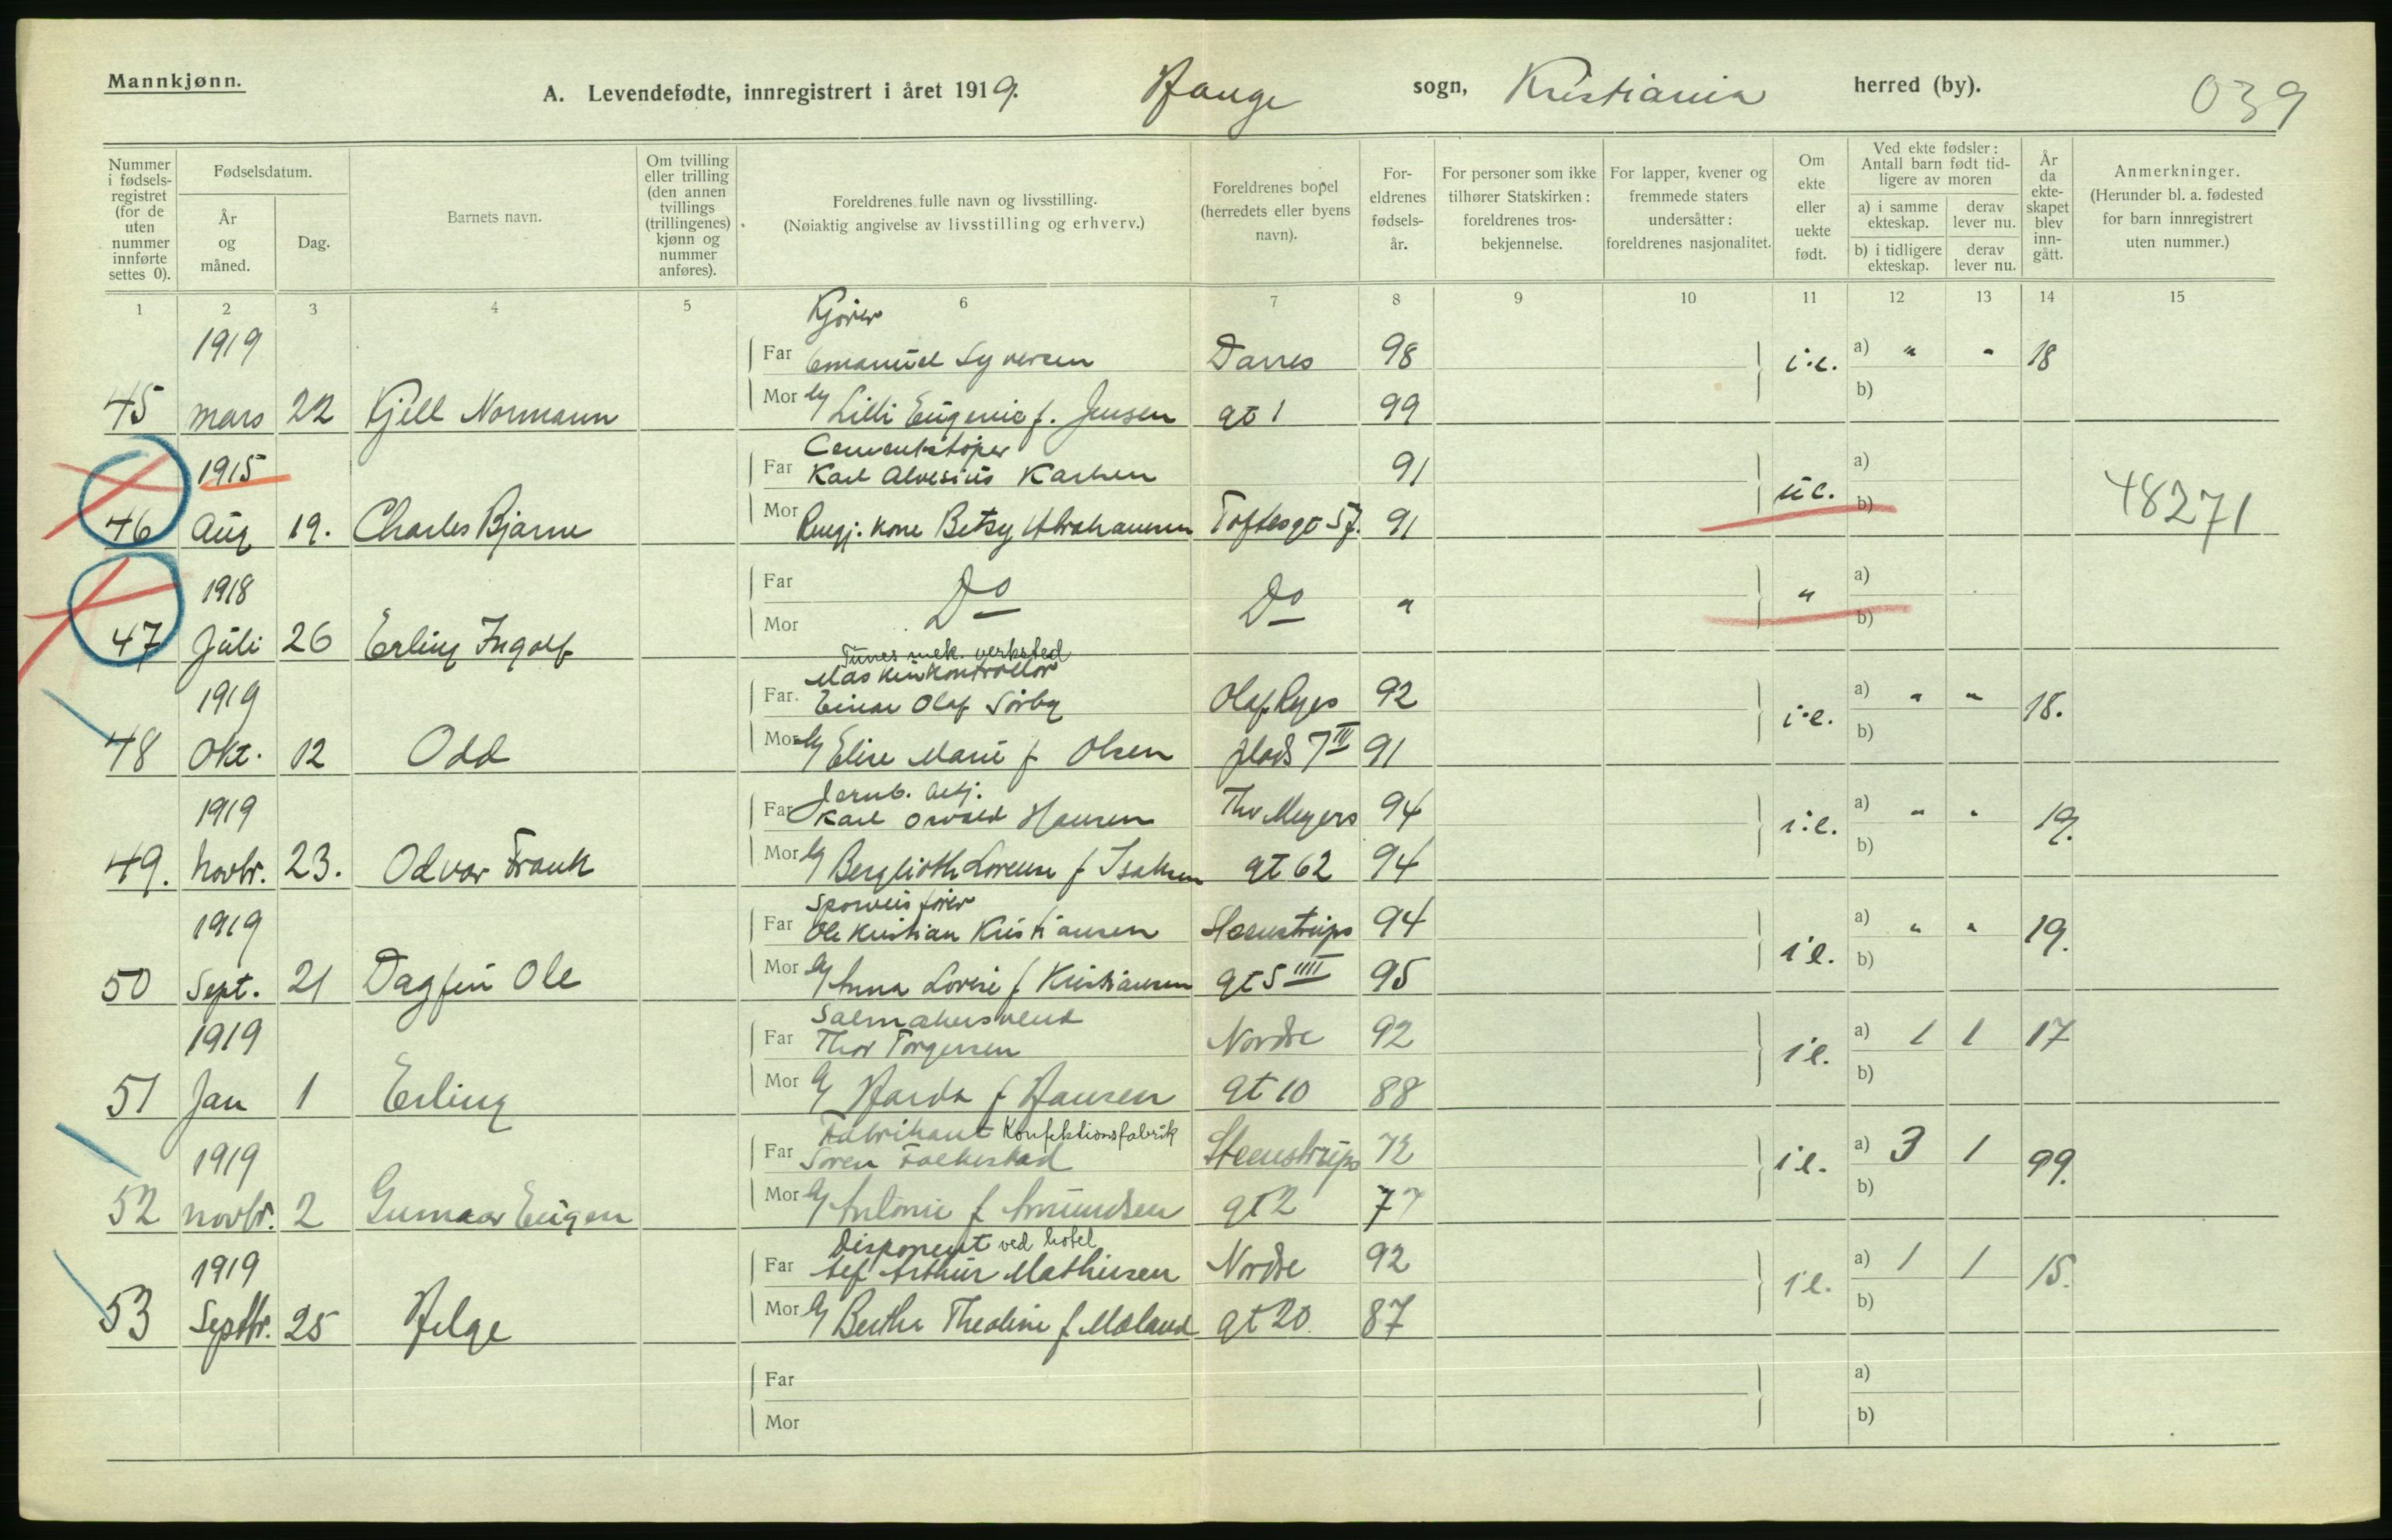 Mannkjønn.
A. Levendefødte, innregistrert i året 1919. Hauge sogn, Kristiania herred (by). 039
Nummer i fødsels-registret (for de uten nummer innførte settes 0).
Fødselsdatum.
År og måned.
Dag.
Barnets navn.
Om tvilling eller trilling (den annen tvillings (trillingenes) kjønn og nummer anføres).
Foreldrenes fulle navn og livsstilling.
(Nøiaktig angivelse av livsstilling og erhverv.)
Foreldrenes bopel (herredets eller byens navn).
For-eldrenes fødsels-år.
For personer som ikke tilhører Statskirken: foreldrenes tros-bekjennelse.
For lapper, kvener og fremmede staters undersåtter: foreldrenes nasjonalitet.
Om ekte eller uekte født.
Ved ekte fødsler: Antall barn født tid-ligere av moren
a) i samme ekteskap.
derav lever nu.
b) i tidligere ekteskap.
derav lever nu.
År da ekte-skapet blev inn-gått.
Anmerkninger.
(Herunder bl. a. fødested for barn innregistrert uten nummer.)
1 2 3 4 5 6 7 8 9 10 11 12 13 14 15
Kjører
1919 Far Emanuel Syversen Darres 98 i.e. a) " " 18
45 mars 22 Kjell Normann Mor Lilli Eugenie f. Jensen gt 1 99 b)
Cementstøper
1915 Far Karl Alvesius Karlsen 91 u.e. a)
46 Aug 19. Charles Bjarne Mor Rengj. kone Betsy Abrahamsen Toftesgt 57. 91 b) 48271
1918 Far Do Do " " a)
47 Juli 26 Erling Ingolf Mor b)
Tunes mek. verksted
Maskinkontrollør
1919 Far Einar Olaf Sørby Olaf Ryes 92 i.e. a) " " 18.
48 Okt. 12 Odd Mor Elise Marie f Olsen plads 7 III 91 b)
Jernb. arbj.
1919 Far Karl Oswald Hansen Thv Meyers 94 i.e. a) " " 19.
49. Novbr. 23. Odvar Frank Mor Berglioth Lorense f Isaksen gt 62 94 b)
Sporveisfører
1919 Far Ole Kristian Kristiansen Steenstrups 94 i.e. a) " " 19.
50 Sept. 21 Dagfin Ole Mor Anna Lovise f Kristiansen gt 5 IIII 95 b)
Salmakersvend
1919 Far Thor Torgersen Nordre 92 i.e. a) 1 1 17
51 Jan 1 Erling Mor Harda f Hansen gt 10 88 b)
Fabrikant Konfektionsfabrik
1919 Far Søren Falkestad Steenstrups 72 i.e. a) 3 1 99.
52 Novbr. 2 Gunnar Eugen Mor Antonie f Amundsen gt 2 77 b)
Disponent ved hotel
1919 Far Arthur Mathisen Nordre 92 i.e. a) 1 1 15.
53 Septbr. 25 Helge Mor Bertha Theoline f Moland gt 20. 87 b)
Far a)
Mor b)